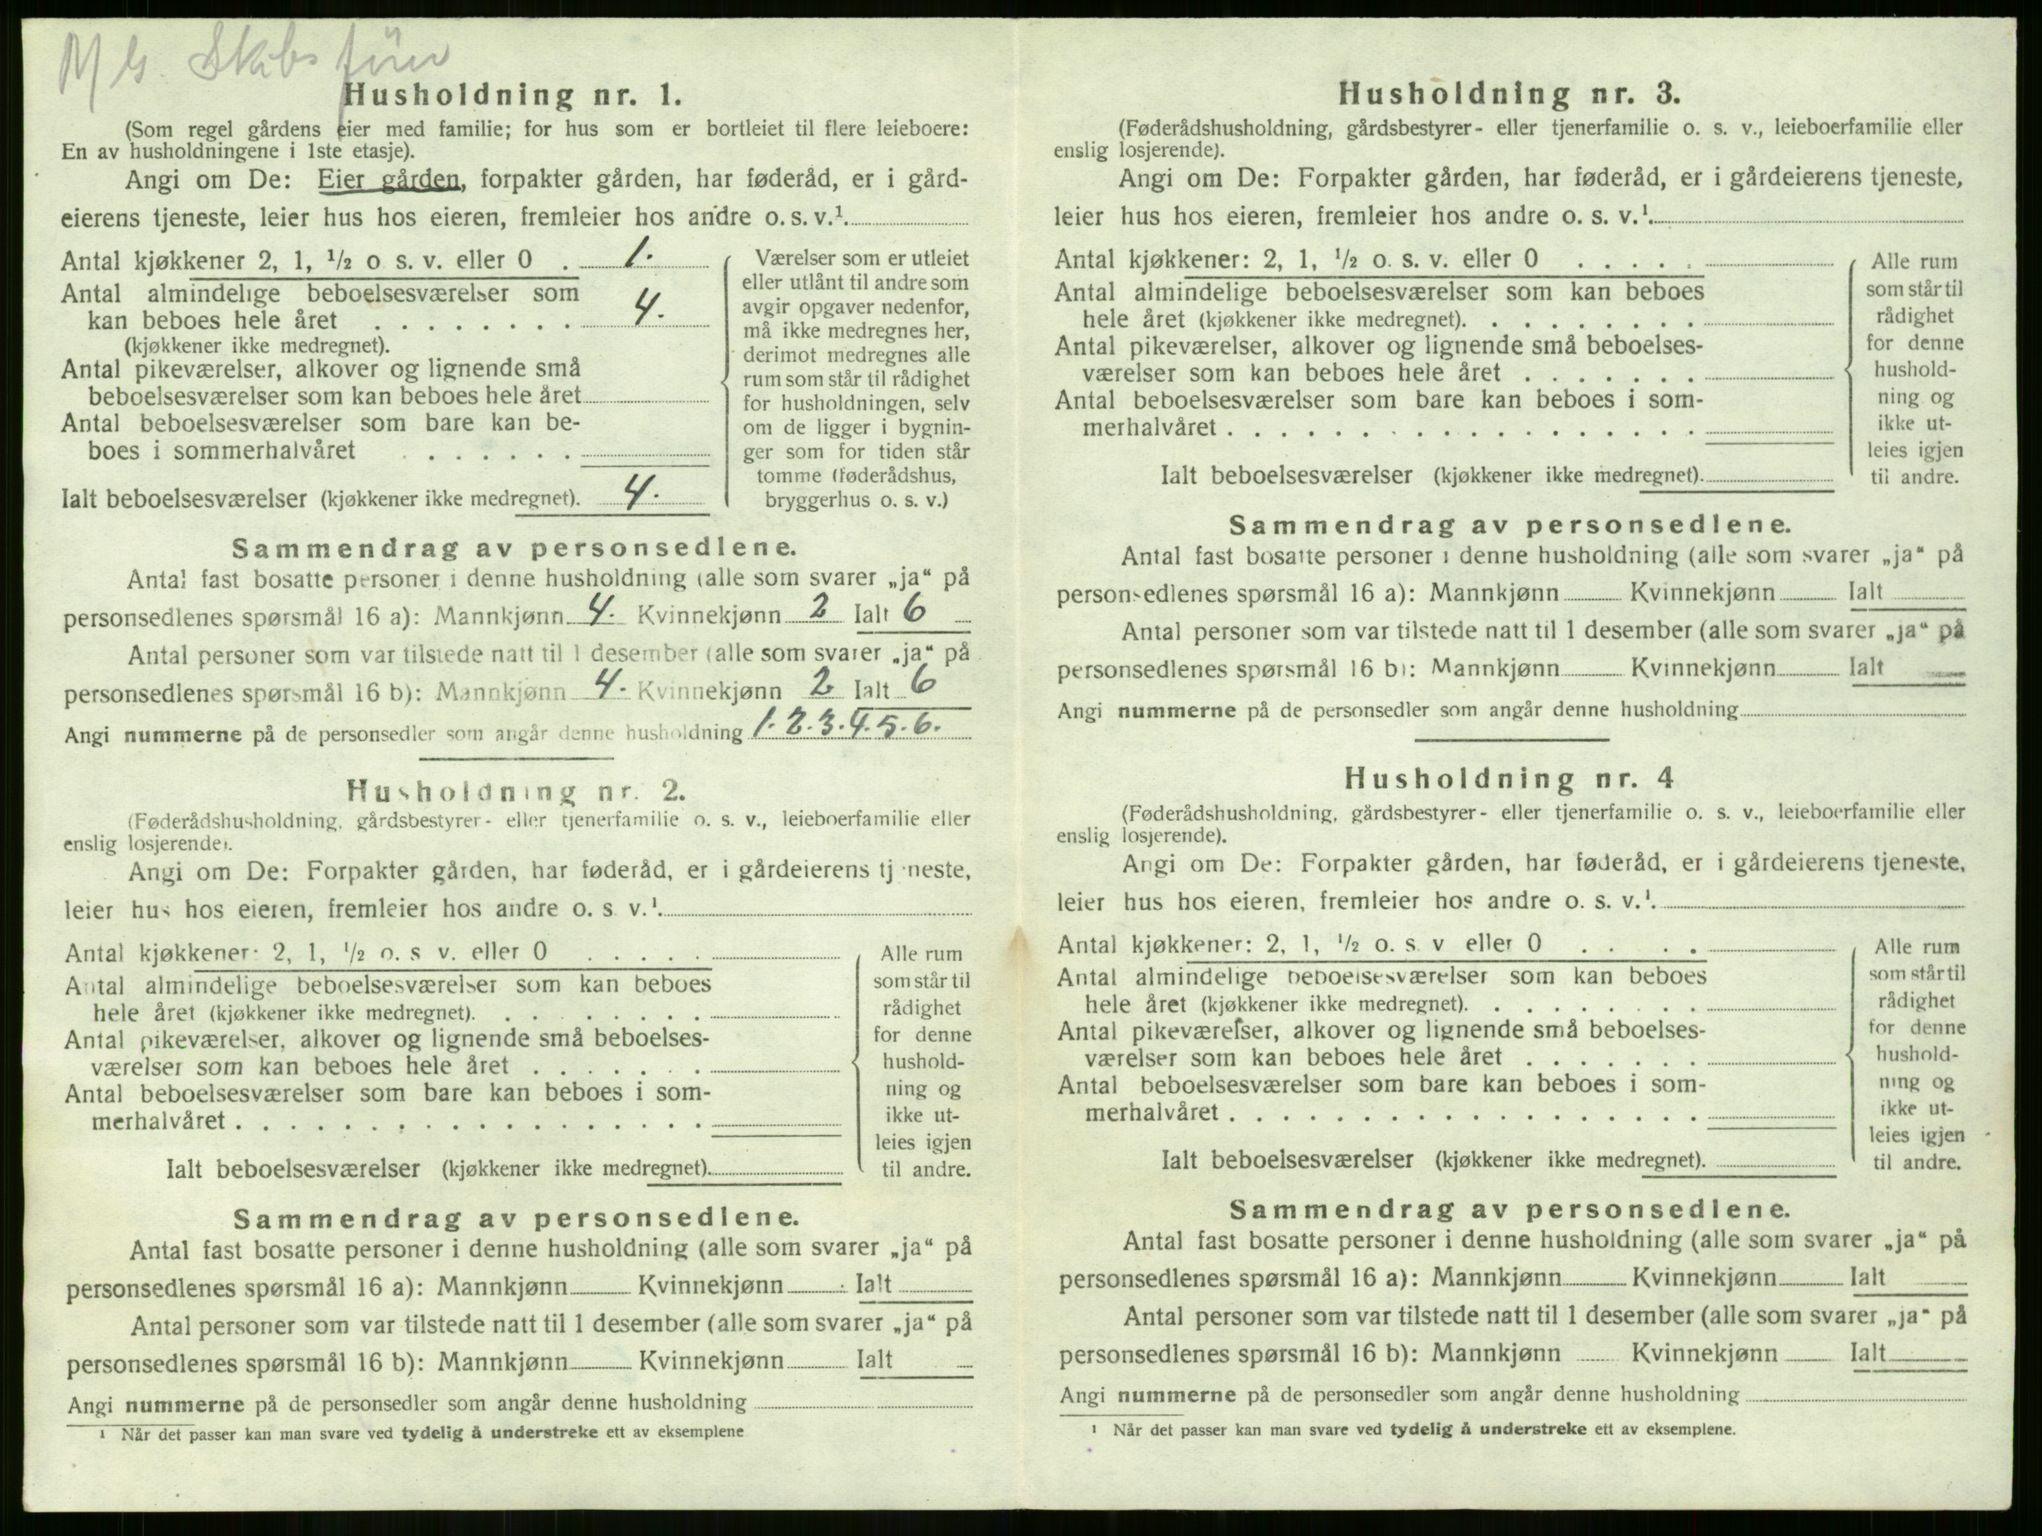 M/G. Skibsfører
Husholdning nr. 1.
(Som regel gårdens eier med familie; for hus som er bortleiet til flere leieboere:
En av husholdningene i 1ste etasje).
Angi om De: Eier gården, forpakter gården, har føderåd, er i gård-
eierens tjeneste, leier hus hos eieren, fremleier hos andre o. s. v.¹
Antal kjøkkener 2, 1, ½ o s. v. eller 0 . 1.
Antal almindelige beboelsesværelser som
kan beboes hele året . . . . . . . . 4.
(kjøkkener ikke medregnet).
Antal pikeværelser, alkover og lignende små
beboelsesværelser som kan beboes hele året
Antal beboelsesværelser som bare kan be-
boes i sommerhalvåret . . . . . .
Ialt beboelsesværelser (kjøkkener ikke medregnet). 4.
Værelser som er utleiet
eller utlånt til andre som
avgir opgaver nedenfor,
må ikke medregnes her,
derimot medregnes alle
rum som står til rådighet
for husholdningen, selv
om de ligger i bygnin-
ger som for tiden står
tomme (føderådshus,
bryggerhus o. s. v.)
Sammendrag av personsedlene.
Antal fast bosatte personer i denne husholdning (alle som svarer „ja“ på
personsedlenes spørsmål 16 a): Mannkjønn 4. Kvinnekjønn 2 Ialt 6
Antal personer som var tilstede natt til 1 desember (alle som svarer „ja“ på
personsedlenes spørsmål 16 b): Mannkjønn 4. Kvinnekjønn 2 Ialt 6
Angi nummerne på de personsedler som angår denne husholdning 1. 2. 3. 4. 5. 6.
Husholdning nr. 2.
(Føderådshusholdning, gårdsbestyrer- eller tjenerfamilie o. s. v., leieboerfamilie eller
enslig losjerende).
Angi om De: Forpakter gården, har føderåd, er i gårdeierens tj neste,
leier hus hos eieren, fremleier hos andre o. s v.¹.
Antal kjøkkener: 2, 1, ½ o. s v. eller 0 . . . . .
Antal almindelige beboelsesværelser som kan beboes
hele året (kjøkkener ikke medregnet). . . . . . . . .
Antal pikeværelser, alkover og lignende små beboelses-
værelser som kan beboes hele året . . . . . . .
Antal beboelsesværelser som bare kan beboes i som-
merhalvåret . . . . . . . . . . . . . . . . . .
Ialt beboelsesværelser (kjøkkener ikke medregnet).
Alle rum
som står til
rådighet
for denne
hushold-
ning og
ikke ut-
leies igjen
til andre.
Sammendrag av personsedlene.
Antal fast bosatte personer i denne husholdning (alle som svarer „ja“ på
personsedlenes spørsmål 16 a): Mannkjønn Kvinnekjønn Ialt
Antal personer som var tilstede natt til 1 desember (alle som svarer „ja“ på
personsedlenes spørsmål 16 b): Mannkjønn Kvinnekjønn Ialt
Angi nummerne på de personsedler som angår denne husholdning
¹ Når det passer kan man svare ved tydelig å understreke ett av eksemplene
Husholdning nr. 3.
(Føderådshusholdning, gårdsbestyrer- eller tjenerfamilie o. s. v., leieboerfamilie eller
enslig losjerende).
Angi om De: Forpakter gården, har føderåd, er i gårdeierens tjeneste,
leier hus hos eieren, fremleier hos andre o. s. v.¹.
Antal kjøkkener: 2, 1, ½ o. s. v. eller 0 . . . . .
Antal almindelige beboelsesværelser som kan beboes
hele året (kjøkkener ikke medregnet). . . . . . . . .
Antal pikeværelser, alkover og lignende små beboelses-
værelser som kan beboes hele året . . . . . . .
Antal beboelsesværelser som bare kan beboes i som-
merhalvåret . . . . . . . . . . . . . . . . . .
Ialt beboelsesværelser (kjøkkener ikke medregnet).
Alle rum
som står til
rådighet
for denne
hushold-
ning og
ikke ut-
leies igjen
til andre.
Sammendrag av personsedlene.
Antal fast bosatte personer i denne husholdning (alle som svarer „ja“ på
personsedlenes spørsmål 16 a): Mannkjønn Kvinnekjønn Ialt
Antal personer som var tilstede natt til 1 desember (alle som svarer „ja“ på
personsedlenes spørsmål 16 b): Mannkjønn Kvinnekjønn Ialt
Angi nummerne på de personsedler som angår denne husholdning
Husholdning nr. 4
(Føderådshusholdning, gårdsbestyrer- eller tjenerfamilie o. s. v., leieboerfamilie eller
enslig losjerende).
Angi om De: Forpakter gården, har føderåd, er i gårdeierens tjeneste,
leier hus hos eieren, fremleier hos andre o. s. v.¹.
Antal kjøkkener: 2, 1, ½ o. s. v eller 0 . . . .
Antal almindelige beboelsesværelser som kan beboes
hele året (kjøkkener ikke medregnet). . . . . . . . .
Antal pikeværelser, alkover og lignende små beboelses-
værelser som kan beboes hele året . . . . . . .
Antal beboelsesværelser som bare kan beboes i som-
merhalvåret . . . . . . . . . . . . . . . . . .
Ialt beboelsesværelser (kjøkkener ikke medregnet).
Alle rum
som står til
rådighet
for denne
hushold-
ning og
ikke ut-
leies igjen
til andre.
Sammendrag av personsedlene.
Antal fast bosatte personer i denne husholdning (alle som svarer „ja“ på
personsedlenes spørsmål 16 a): Mannkjønn Kvinnekjønn Ialt
Antal personer som var tilstede natt til 1 desember (alle som svarer „ja“ på
personsedlenes spørsmål 16 b): Mannkjønn Kvinnekjønn Ialt
Angi nummerne på de personsedler som angår denne husholdning
¹ Når det passer kan man svare ved tydelig å understreke ett av eksemplene.